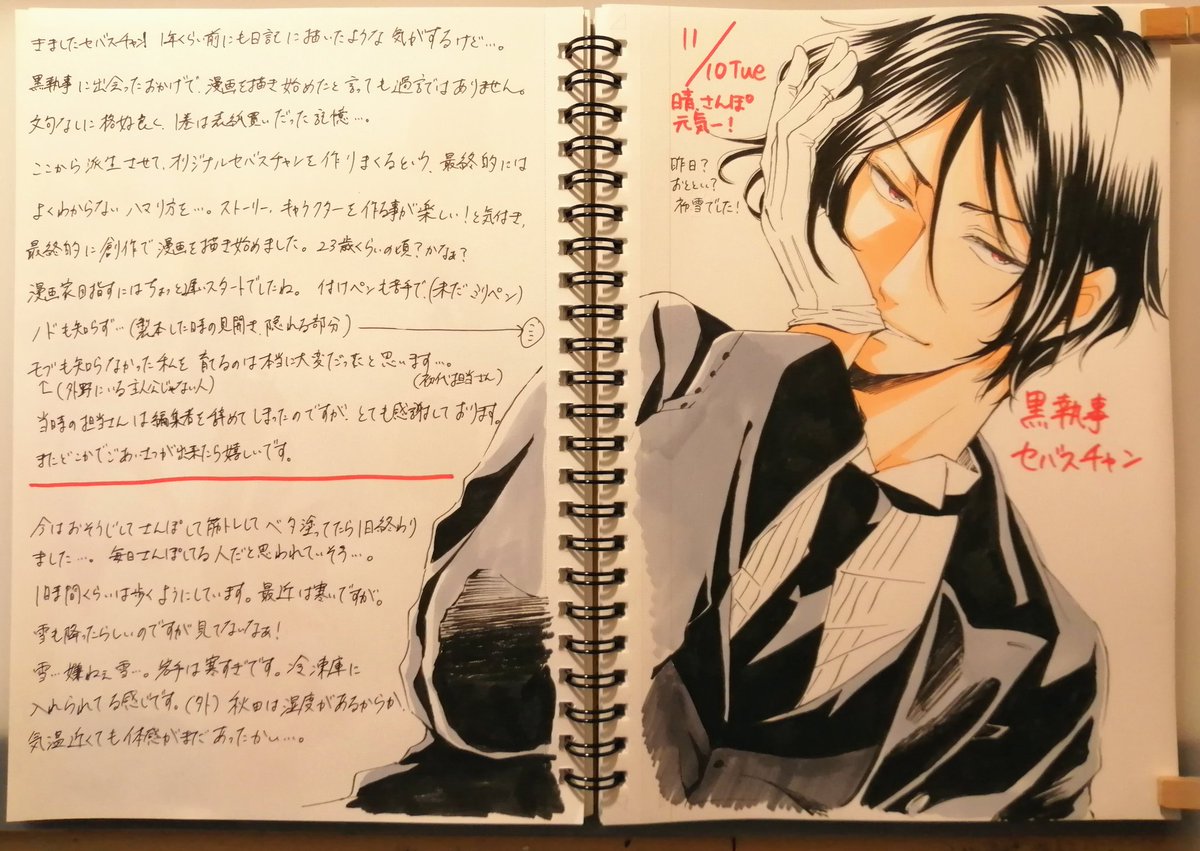 きましたセバスチャン! 1年くらい前にも日記に描いたような気がするけど…。
黒執事に出会ったおかげで、漫画を描き始めたと言っても過言ではありません。
文句なしに格好良く、1巻は表紙買いだった記憶…。
ここから派生させて、オリジナルセバスチャンを作りまくるという、最終的には
よくわからないハマり方を…。ストーリー、キャラクターを作る事が楽しい!と気付き、
最終的に創作で漫画を描き始めました。23歳くらいの頃?かなぁ?
漫画家目指すにはちょっと遅いスタートでしたね。 付けペンも苦手で、(未だミリペン)
ノドも知らず…(製本した時の見開き、隠れる部分)
モブも知らなかった私を育てるのは本当に大変だったと思います…。
↑(外野にいる主人公じゃない人)
(初代担当さん)
当時の担当さんは編集者を辞めてしまったのですが、とても感謝しております。
またどこかでごあいさつが出来たら嬉しいです。
今はおそうじしてさんぽして筋トレしてベタ塗ってたら1日終わり
ました…。毎日さんぽしてる人だと思われていそう…。
1時間くらいは歩くようにしています。最近は寒いですが。
雪も降ったらしいのですが見てないなぁ!
雪…嫌ねぇ雪…。岩手は寒すぎです。冷凍庫に
入れられてる感じです。(外) 秋田は湿度があるからか、
気温近くても体感がまだあったかい…。
11/10 Tue
晴、さんぽ
元気ー!
昨日?
おととい?
初雪でした!
黒執事
セバスチャン